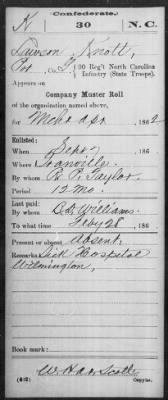 Confederate.
K 30 N.C.
Lawson Knott
Pvt, Co. G, 30 Reg't North Carolina
Infantry (State Troops).
Appears on
Company Muster Roll
of the organization named above,
for Mch & Apr, 1862
Enlisted:
When Sept, 186
Where Granville
By whom R. P. Taylor
Period 12 mo.
Last paid:
By whom Williams.
To what time Feby 28, 186
Present or absent Absent.
Remarks: Sick Hospital
Wilmington,
Book mark:
(642) Copyist.